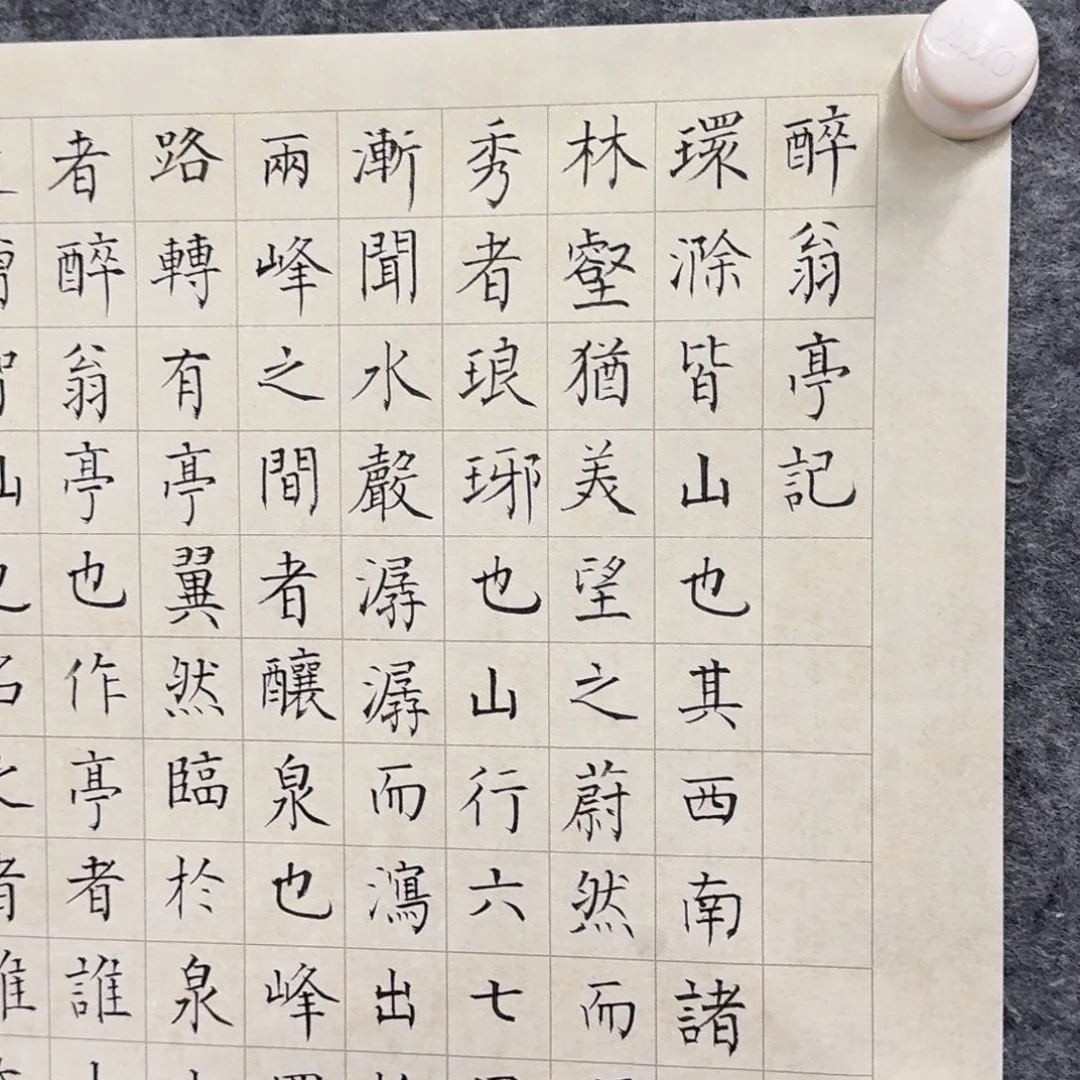 醉翁亭記
環滁皆山也其西南諸
林壑猶美望之蔚然而
秀者琅琊也山行六七
漸聞水聲潺潺而瀉出
兩峰之間者釀泉也峰
路轉有亭翼然臨於泉
者醉翁亭也作亭者誰